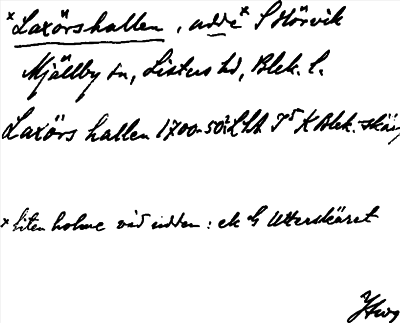 ×Laxörshallen, udde× S Hörvik
Mjällby sn, Listers hd, Blek. l.
Laxörs hallen 1700-50t LSA K Blek. skär
× liten holme vid udden: ek G Utterskäret